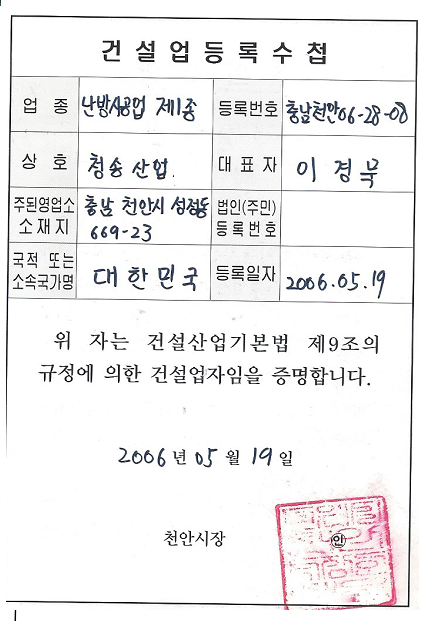 건설업등록수첩
업 종 난방시공업 제1종 등록번호 충남천안06-28-08
상 호 청송산업. 대표자 이경묵
주된영업소 소재지 충남 천안시 성정동 669-23 법인(주민) 등록번호
국적 또는 소속국가명 대한민국 등록일자 2006.05.19
위 자는 건설산업기본법 제9조의
규정에 의한 건설업자임을 증명합니다.
2006년 05월 19일
천안시장 인